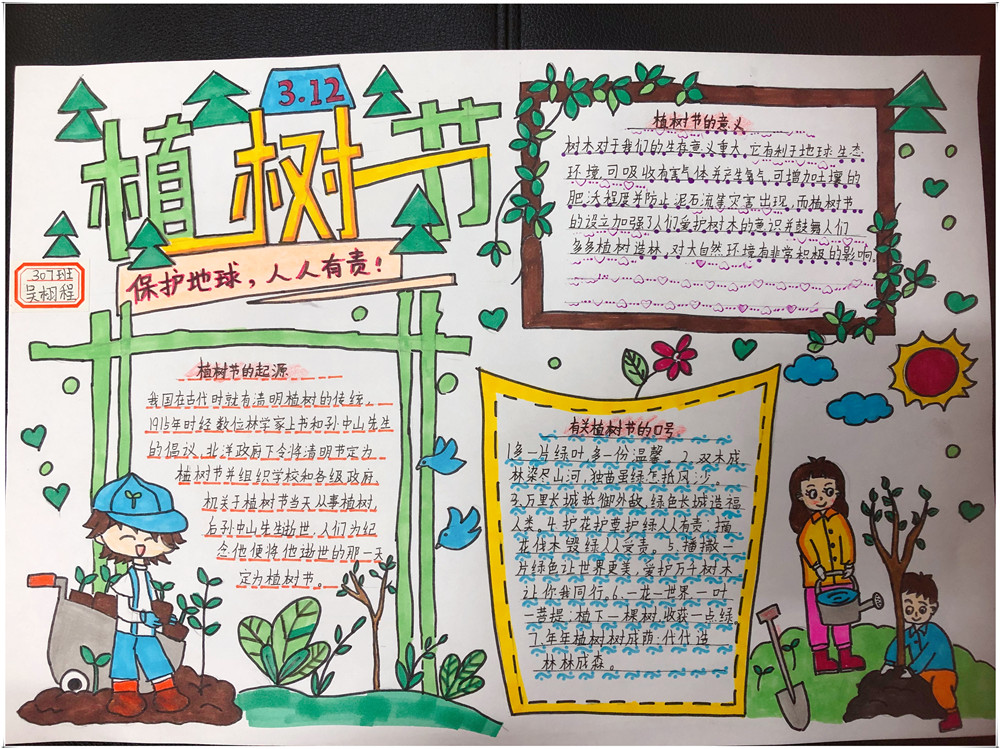 3.12
植树节
保护地球，人人有责！
307班
吴栩程
植树节的意义
树木对于我们的生存意义重大，它有利于地球生态
环境，可吸收有害气体并产生氧气，可增加土壤的
肥沃程度并防止泥石流等灾害出现，而植树节
的设立加强了人们爱护树木的意识并鼓舞人们
多多植树造林，对大自然环境有非常积极的影响。
植树节的起源
我国在古代时就有清明植树的传统，
1915年时经数位林学家上书和孙中山先生
的倡议，北洋政府下令将清明节定为
植树节并组织学校和各级政府
机关于植树节当天从事植树，
后孙中山先生逝世，人们为纪
念他便将他逝世的那一天
定为植树节。
有关植树节的口号
1.多一片绿叶，多一份温馨。2.双木成
林梁尽山河，独苗虽绿怎抵风沙。
3.万里长城抵御外敌，绿色长城造福
人类。4.护花护草护绿人人有责；摘
花伐木毁绿人人受责。5.播撒一
片绿色让世界更美，爱护万千树木
让你我同行。6.一花一世界，一叶
一菩提；植下一棵树，收获一点绿
7.年年植树树成荫；代代造
林林成森。